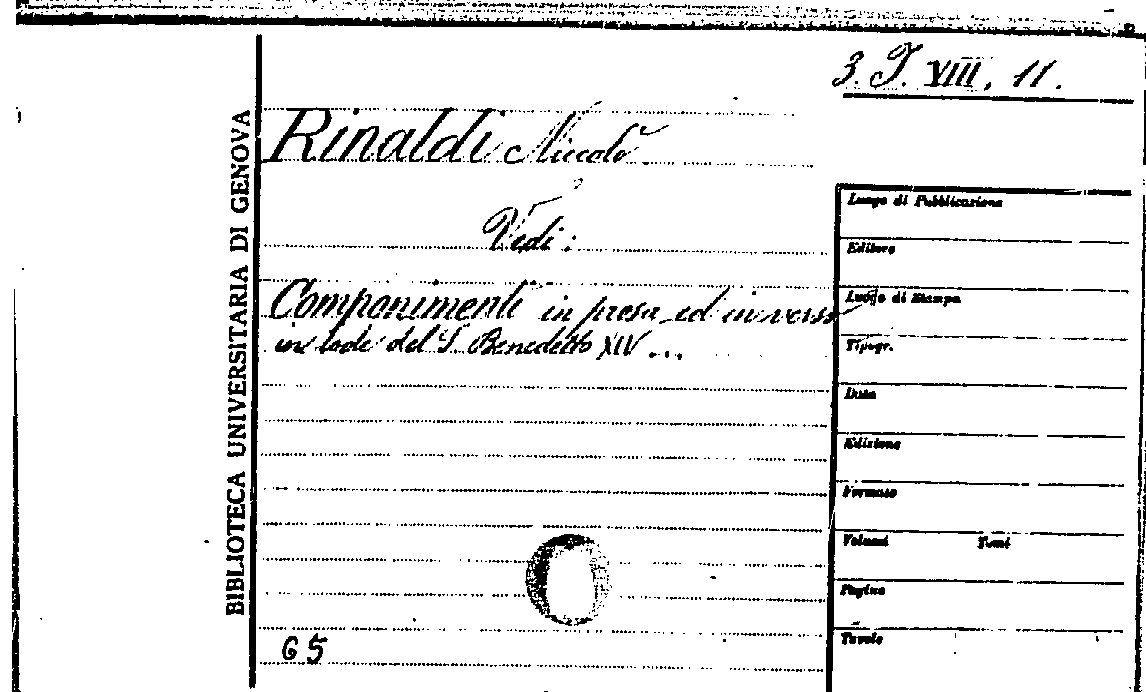 3. T. VIII, 11.
BIBLIOTECA UNIVERSITARIA DI GENOVA
Rinaldi Niccolò
Vedi:
Componimenti in prosa ed in versi
in lode del S. Benedetto XIV ...
65
Luogo di Pubblicazione
Editore
Luogo di Stampa
Tipogr.
Data
Edizione
Formato
Volumi Tomi
Pagine
Tavole